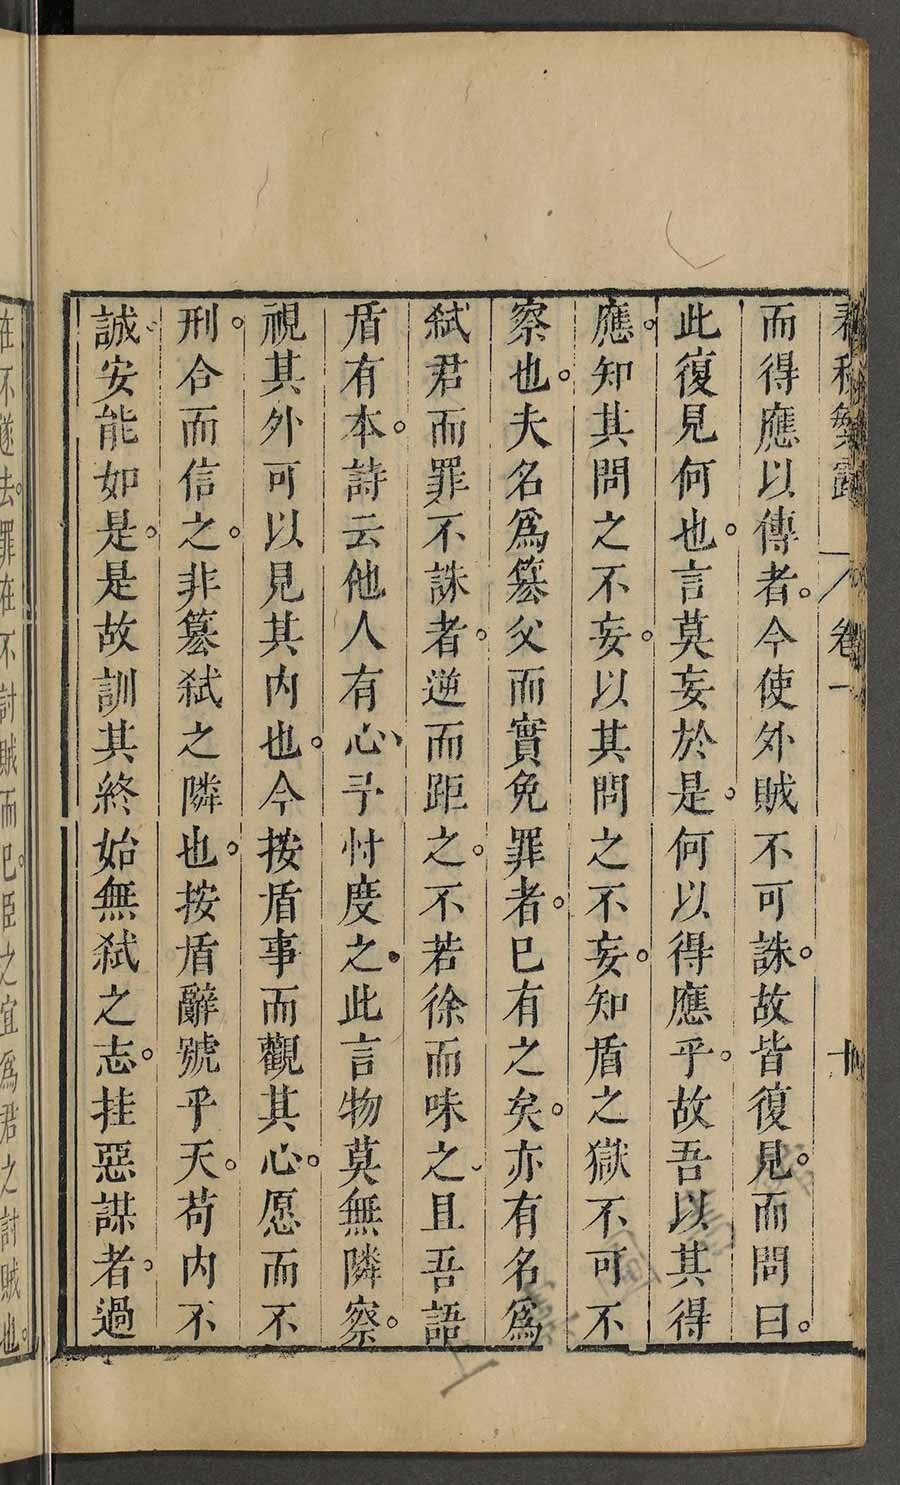 春秋繁露 卷一 十
而得應以傳者。今使外賊不可誅。故皆復見。而問曰。
此復見何也。言莫妄於是。何以得應乎。故吾以其得
應。知其問之不妄。以其問之不妄。知盾之獄不可不
察也。夫名爲簒父而實免罪者。已有之矣。亦有名爲
弑君而罪不誅者。逆而距之。不若徐而味之、且吾語
盾有本。詩云他人有心、予忖度之。此言物莫無隣察。
視其外可以見其內也。今按盾事而觀其心。愿而不
刑。合而信之。非簒弑之隣也。按盾辭號乎天。苟內不
誠、安能如是。是故訓其終始無弑之志。挂惡謀者。過
在不遂去。罪在不討賊而已。臣之宜爲君之討賊也。